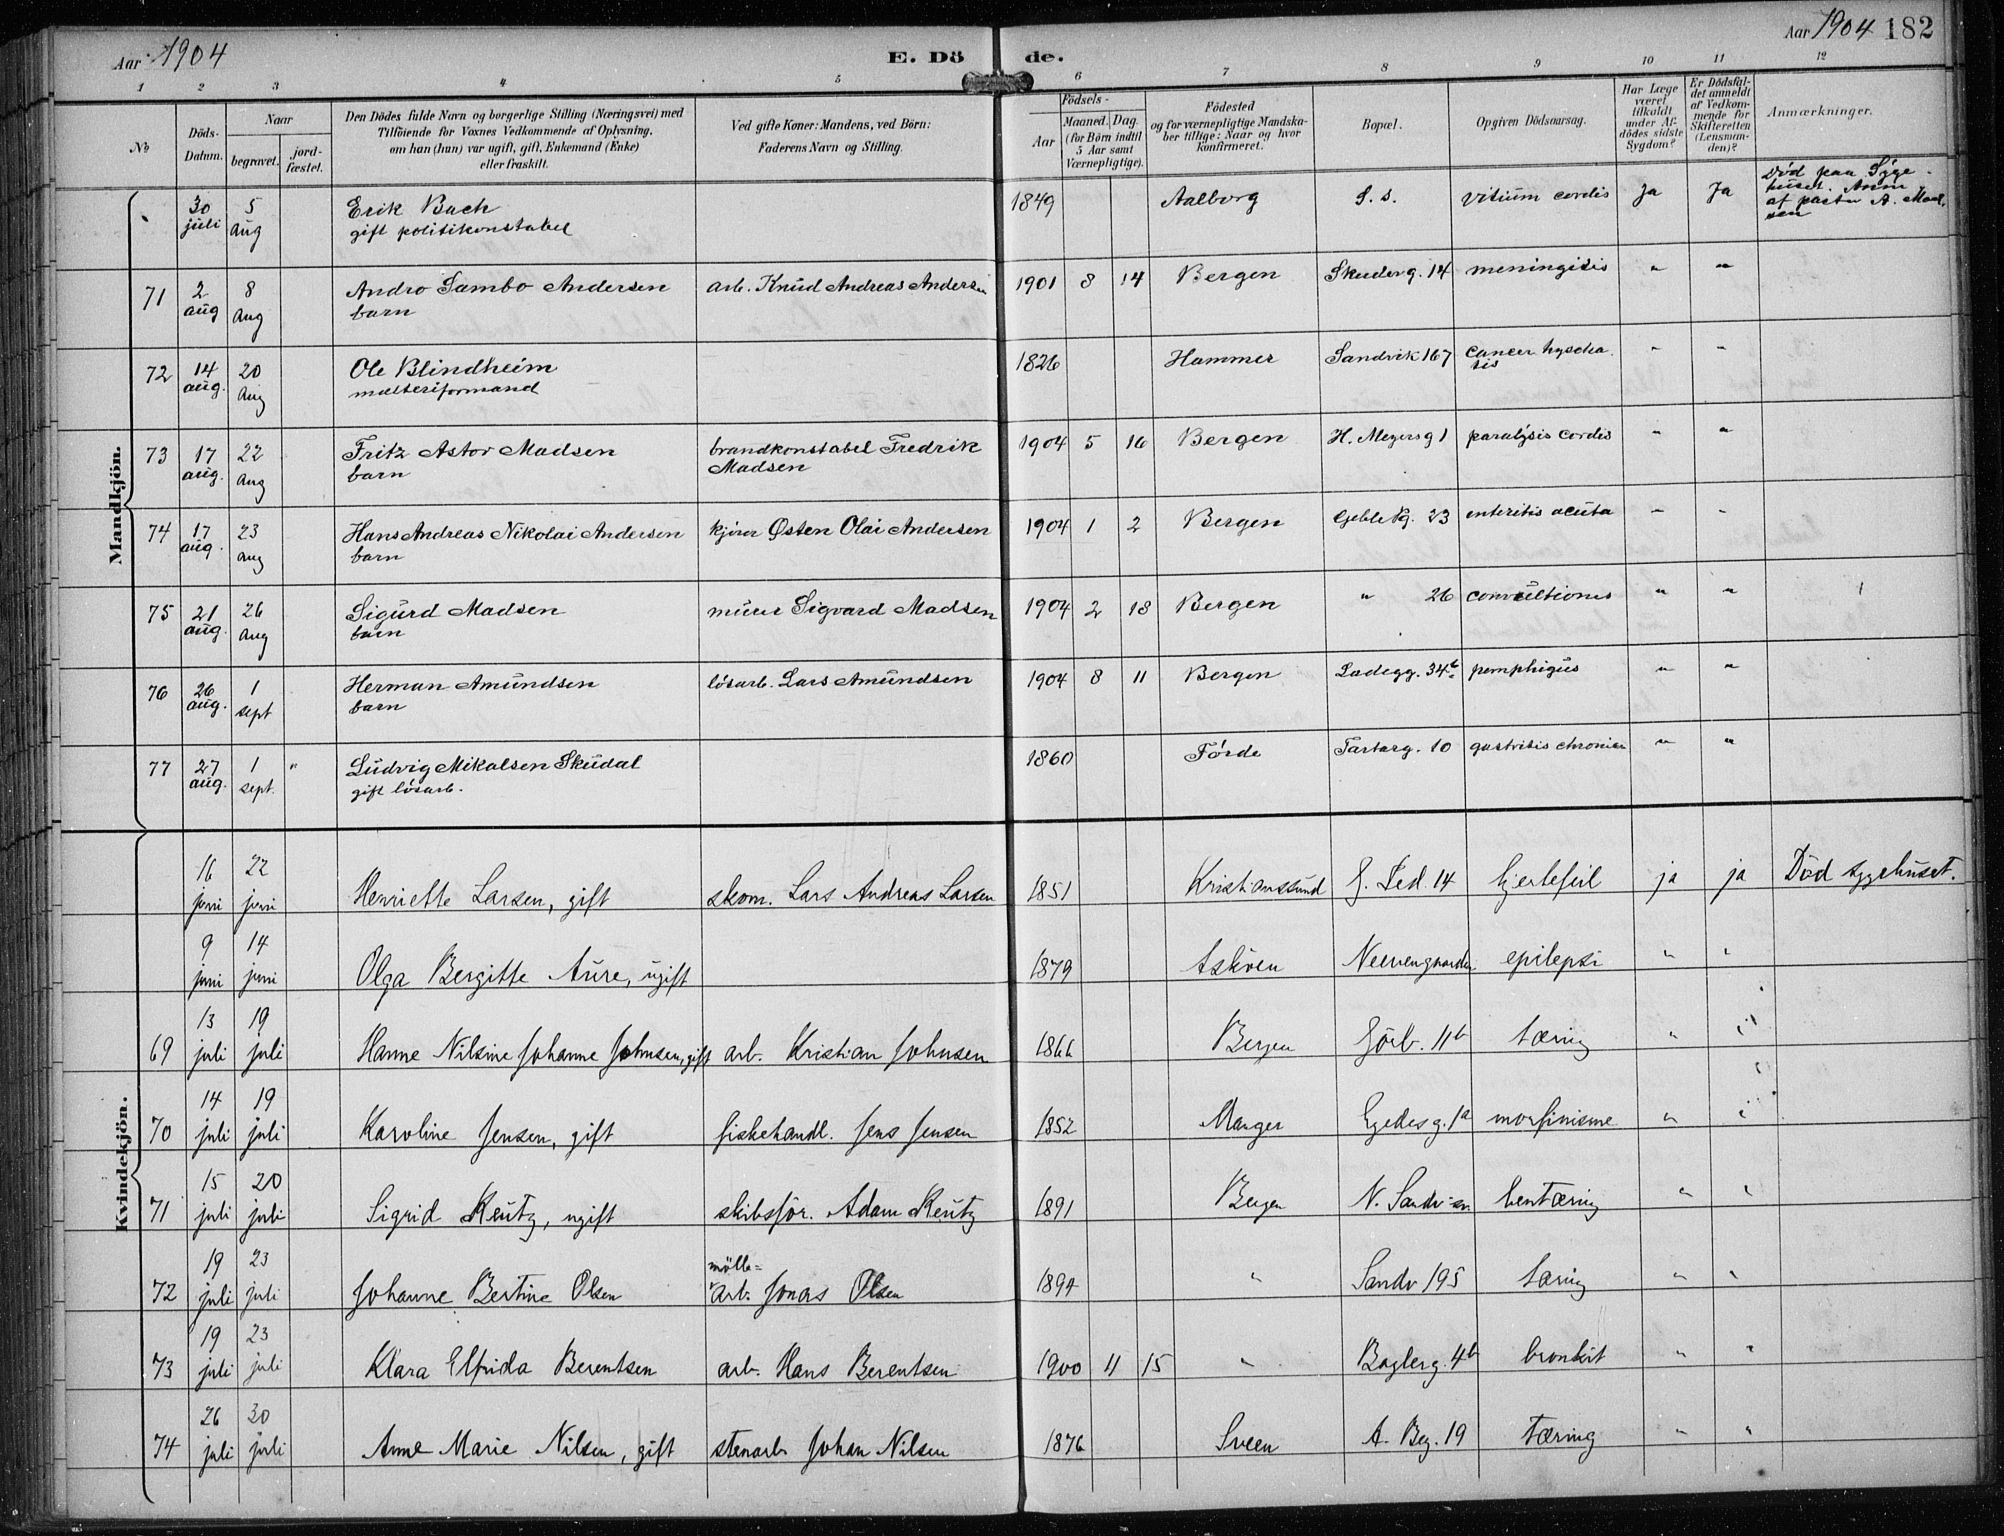 Aar 1904
E. Dö de.
Aar 1904 182
1 2 3 4 5 6 7 8 9 10 11 12
No
Döds-Datum.
Naar
begravet.
jord-fæstet.
Den Dödes fulde Navn og borgerlige Stilling (Næringsvei) med
Tilföiende for Voxnes Vedkommende af Oplysning,
om han (hun) var ugift, gift, Enkemand (Enke)
eller fraskilt.
Ved gifte Koner: Mandens, ved Börn:
Faderens Navn og Stilling.
Födsels-
Aar
Maaned. Dag.
(for Börn indtil
5 Aar samt
Værnepligtige).
Födested
og for værnepligtige Mandska-
ber tillige: Naar og hvor
konfirmeret.
Bopæl.
Opgiven Dödsaarsag.
Har Læge
været
tilkaldt
under Af-
dödes sidste
Sygdom?
Er Dödsfal-
det anmeldt
af Vedkom-
mende for
Skifteretten
(Lensman-
den)?
Anmærkninger.
Mandkjön.
30 juli 5 aug Erik Bach 1849 Aalborg S. s. vitium cordis Ja Ja Død paa Syge-
huset. Anm
af pastor A. Mad-
sen
gift politikonstabel
71 2 aug 8 aug Andro Sambo Andersen arb. Knud Andreas Andersen 1901 8 14 Bergen Skuderg. 14 meningitis " "
barn
72 14 aug. 20 aug Ole Blindheim 1826 Hammer Sandvik 167 cancer " "
malteriformand
73 17 aug. 22 aug Fritz Astor Madsen brandkonstabel Fredrik 1904 5 16 Bergen H. Meyersg 1 paralysis cordis " "
barn Madsen
74 17 aug. 23 aug Hans Andreas Nikolai Andersen kjører Østen Olai Andersen 1904 1 2 Bergen 23 enteritis acuta " "
barn
75 21 aug. 26 aug Sigurd Madsen murer Sigvard Madsen 1904 2 18 Bergen " 26 convultiones " "
barn
76 26 aug. 1 sept Herman Amundsen løsarb. Lars Amundsen 1904 8 11 Bergen Ladegg. 34b pemphigus " "
barn
77 27 aug. 1 sept. " Ludvig Mikalsen Skudal 1860 Førde Tartarg. 10 gastritis chronica " "
gift løsarb.
Kvindekjön.
16 juni 22 juni Henriette Larsen, gift skom. Lars Andreas Larsen 1851 Kristianssund Led. 14 hjertefeil ja ja Død sygehuset.
9 juni 14 juni Olga Bergitte Aure, ugift 1879 Askøen Neevengaarden epilepsi " "
69 13 juli 19 juli Hanne Nilsine Johanne Johnsen, gift arb. Kristian Johnsen 1866 Bergen 11b tæring " "
70 14 juli 19 juli Karoline Jensen, gift fiskehandl. Jens Jensen 1852 Manger Egedesg. 1a morfinisme " "
71 15 juli 20 juli Sigrid Reutz, ugift skibsfør. Adam Reutz 1891 Bergen N. Sandv bentæring " "
72 19 juli 23 juli Johanne Bertine Olsen mølle=
arb. Jonas Olsen 1894 " Sandv 195 tæring " "
73 19 juli 23 juli Klara Elfrida Berentsen arb. Hans Berentsen 1900 11 15 " Baglerg. 4b bronkit " "
74 26 juli 30 juli Anne Marie Nilsen, gift stenarb Johan Nilsen 1876 Sveen A. Beg. 19 Tæring " "